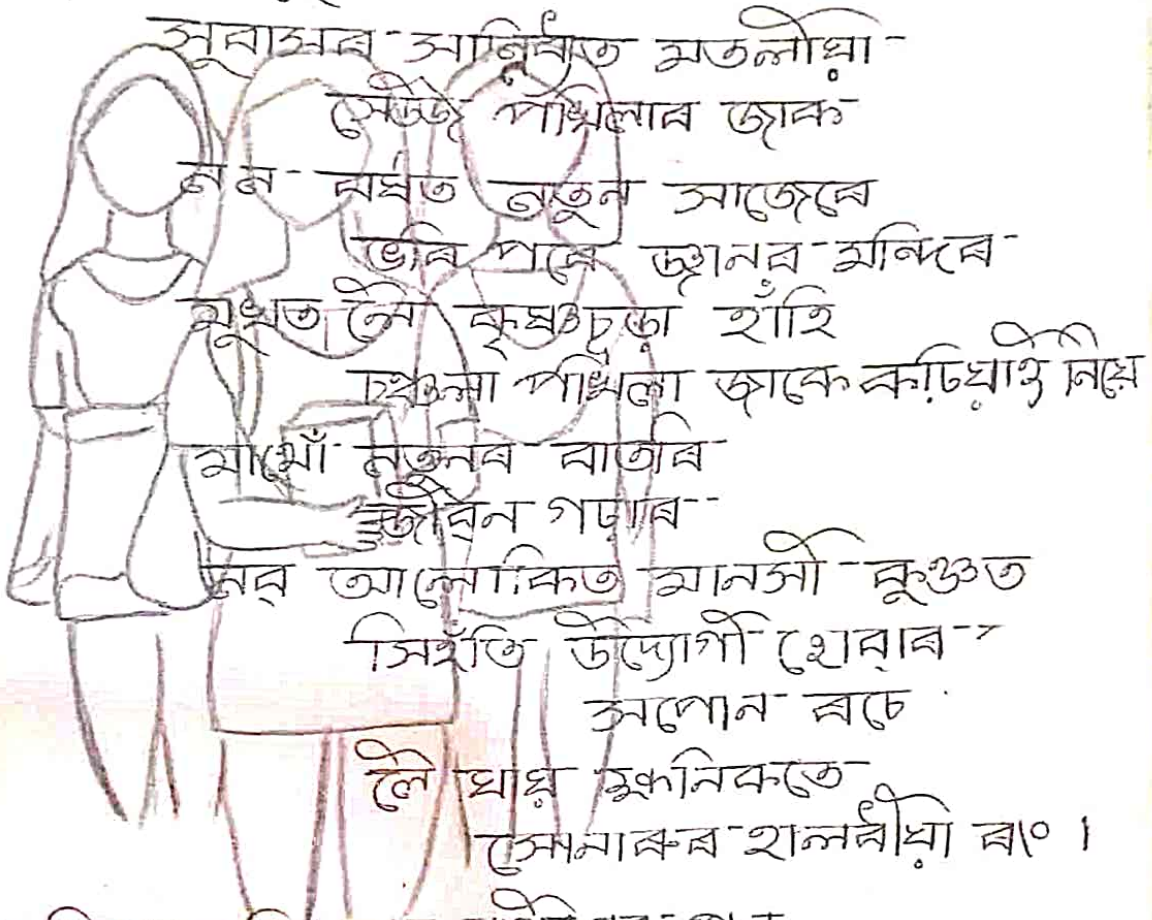 সুবাসৰ সান্নিধ্যত মতলীয়া
সেউজ পখিলাৰ জাক
নৱ বৰ্ষত নতুন সাজেৰে
ভৰি পৰে জ্ঞানৰ মন্দিৰ
মুখত লৈ কৃষ্ণচূড়া হাঁহি
চঞ্চলা পখিলা জাকে কঢ়িয়াই নিয়ে
নতুনৰ বাতৰি
জীৱন গঢ়াৰ
নৱ আলোকিত মানসী কুঞ্জত
সিহঁতি উদ্যোগী হোৱাৰ
সপোন ৰচে
লৈ যায় ক্ষনিকতে
সোনাৰুৰ হালধীয়া ৰং ।